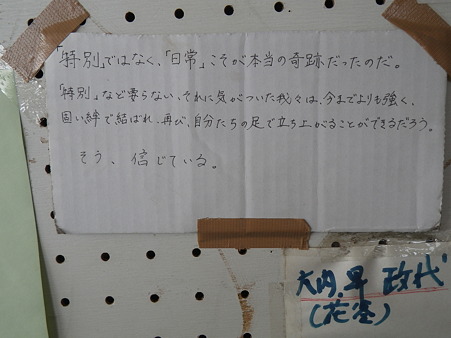 「特別」ではなく、「日常」こそが本当の奇跡だったのだ。
「特別」など要らない、それに気がついた我々は、今までよりも強く、
固い絆で結ばれ、再び、自分たちの足で立ち上がることができるだろう。
そう、信じている。
大内 早 政代